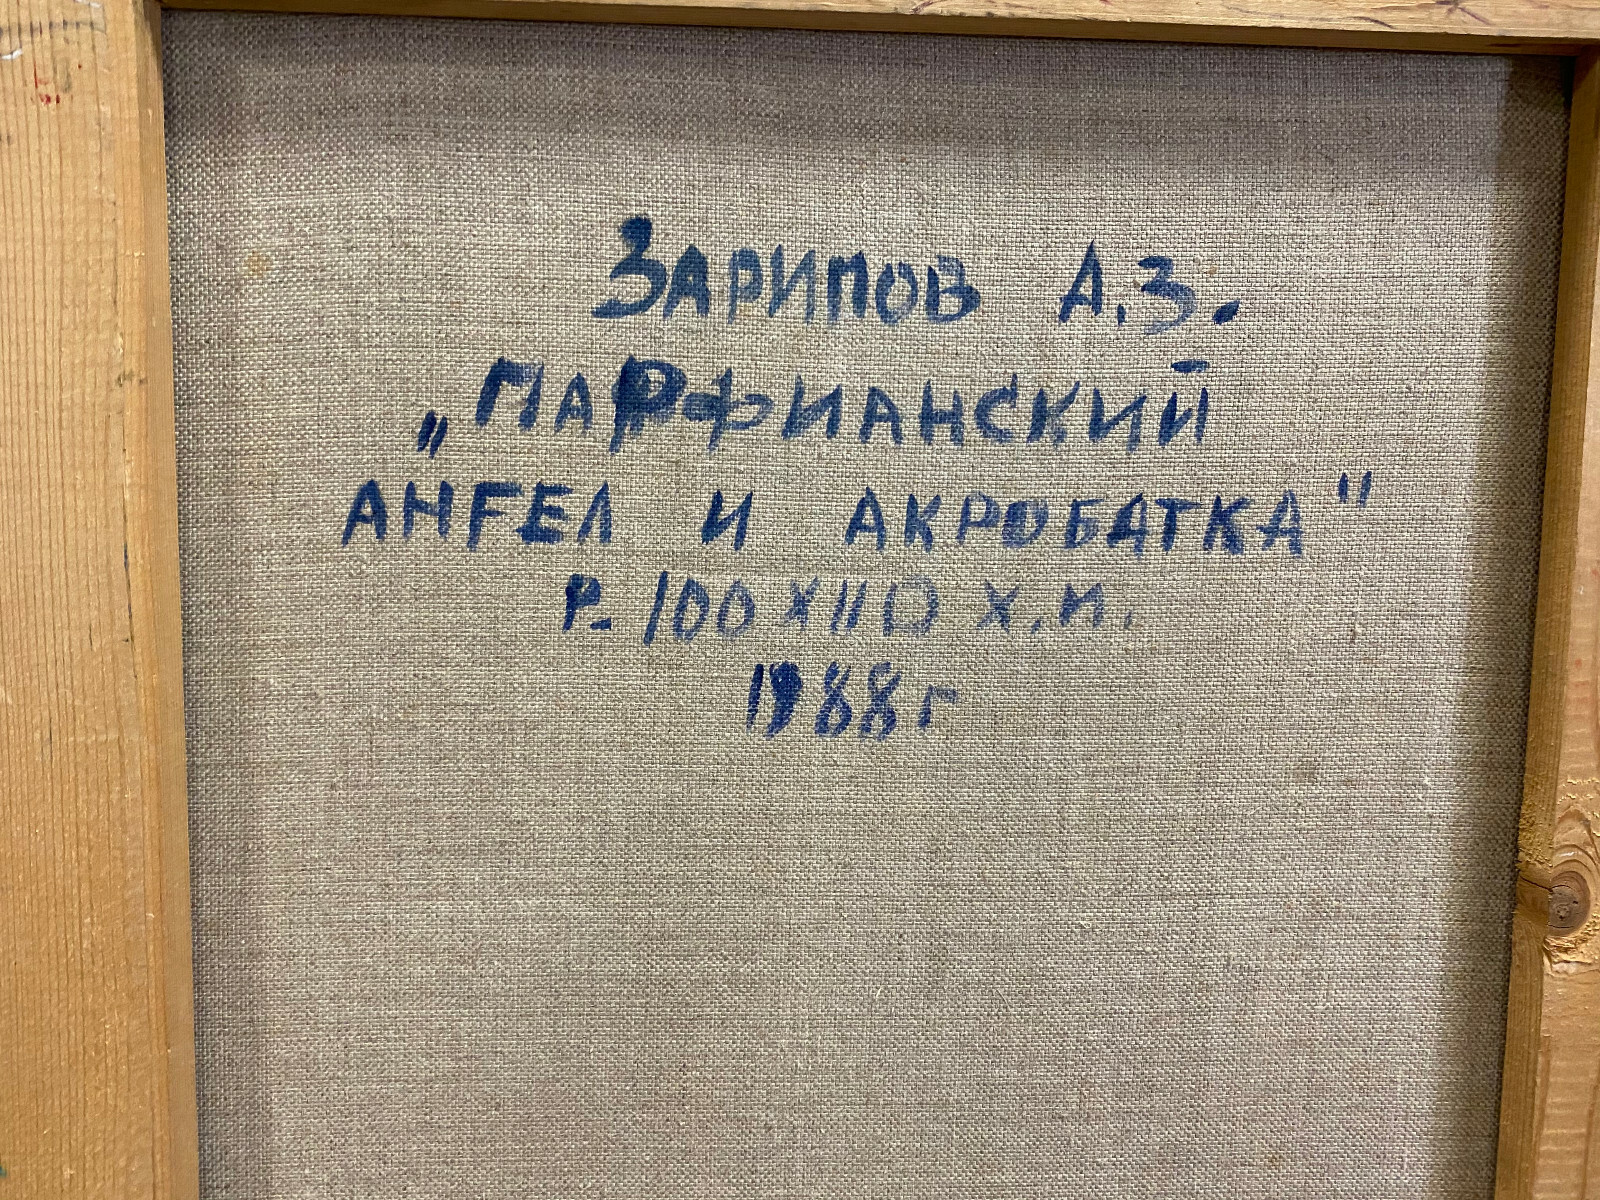 ЗАРИПОВ А.З.
„ПАРФИАНСКИЙ
АНГЕЛ И АКРОБАТКА"
Р. 100 Х 110 Х.М.
1988 г